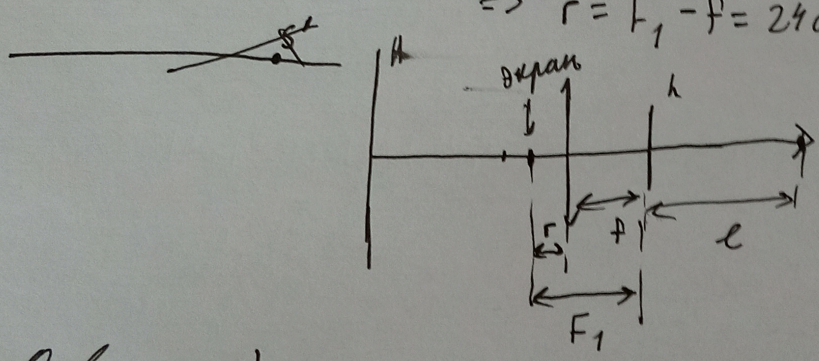 => r = F₁ - f = 24
H
экран
h
r
f
l
F₁